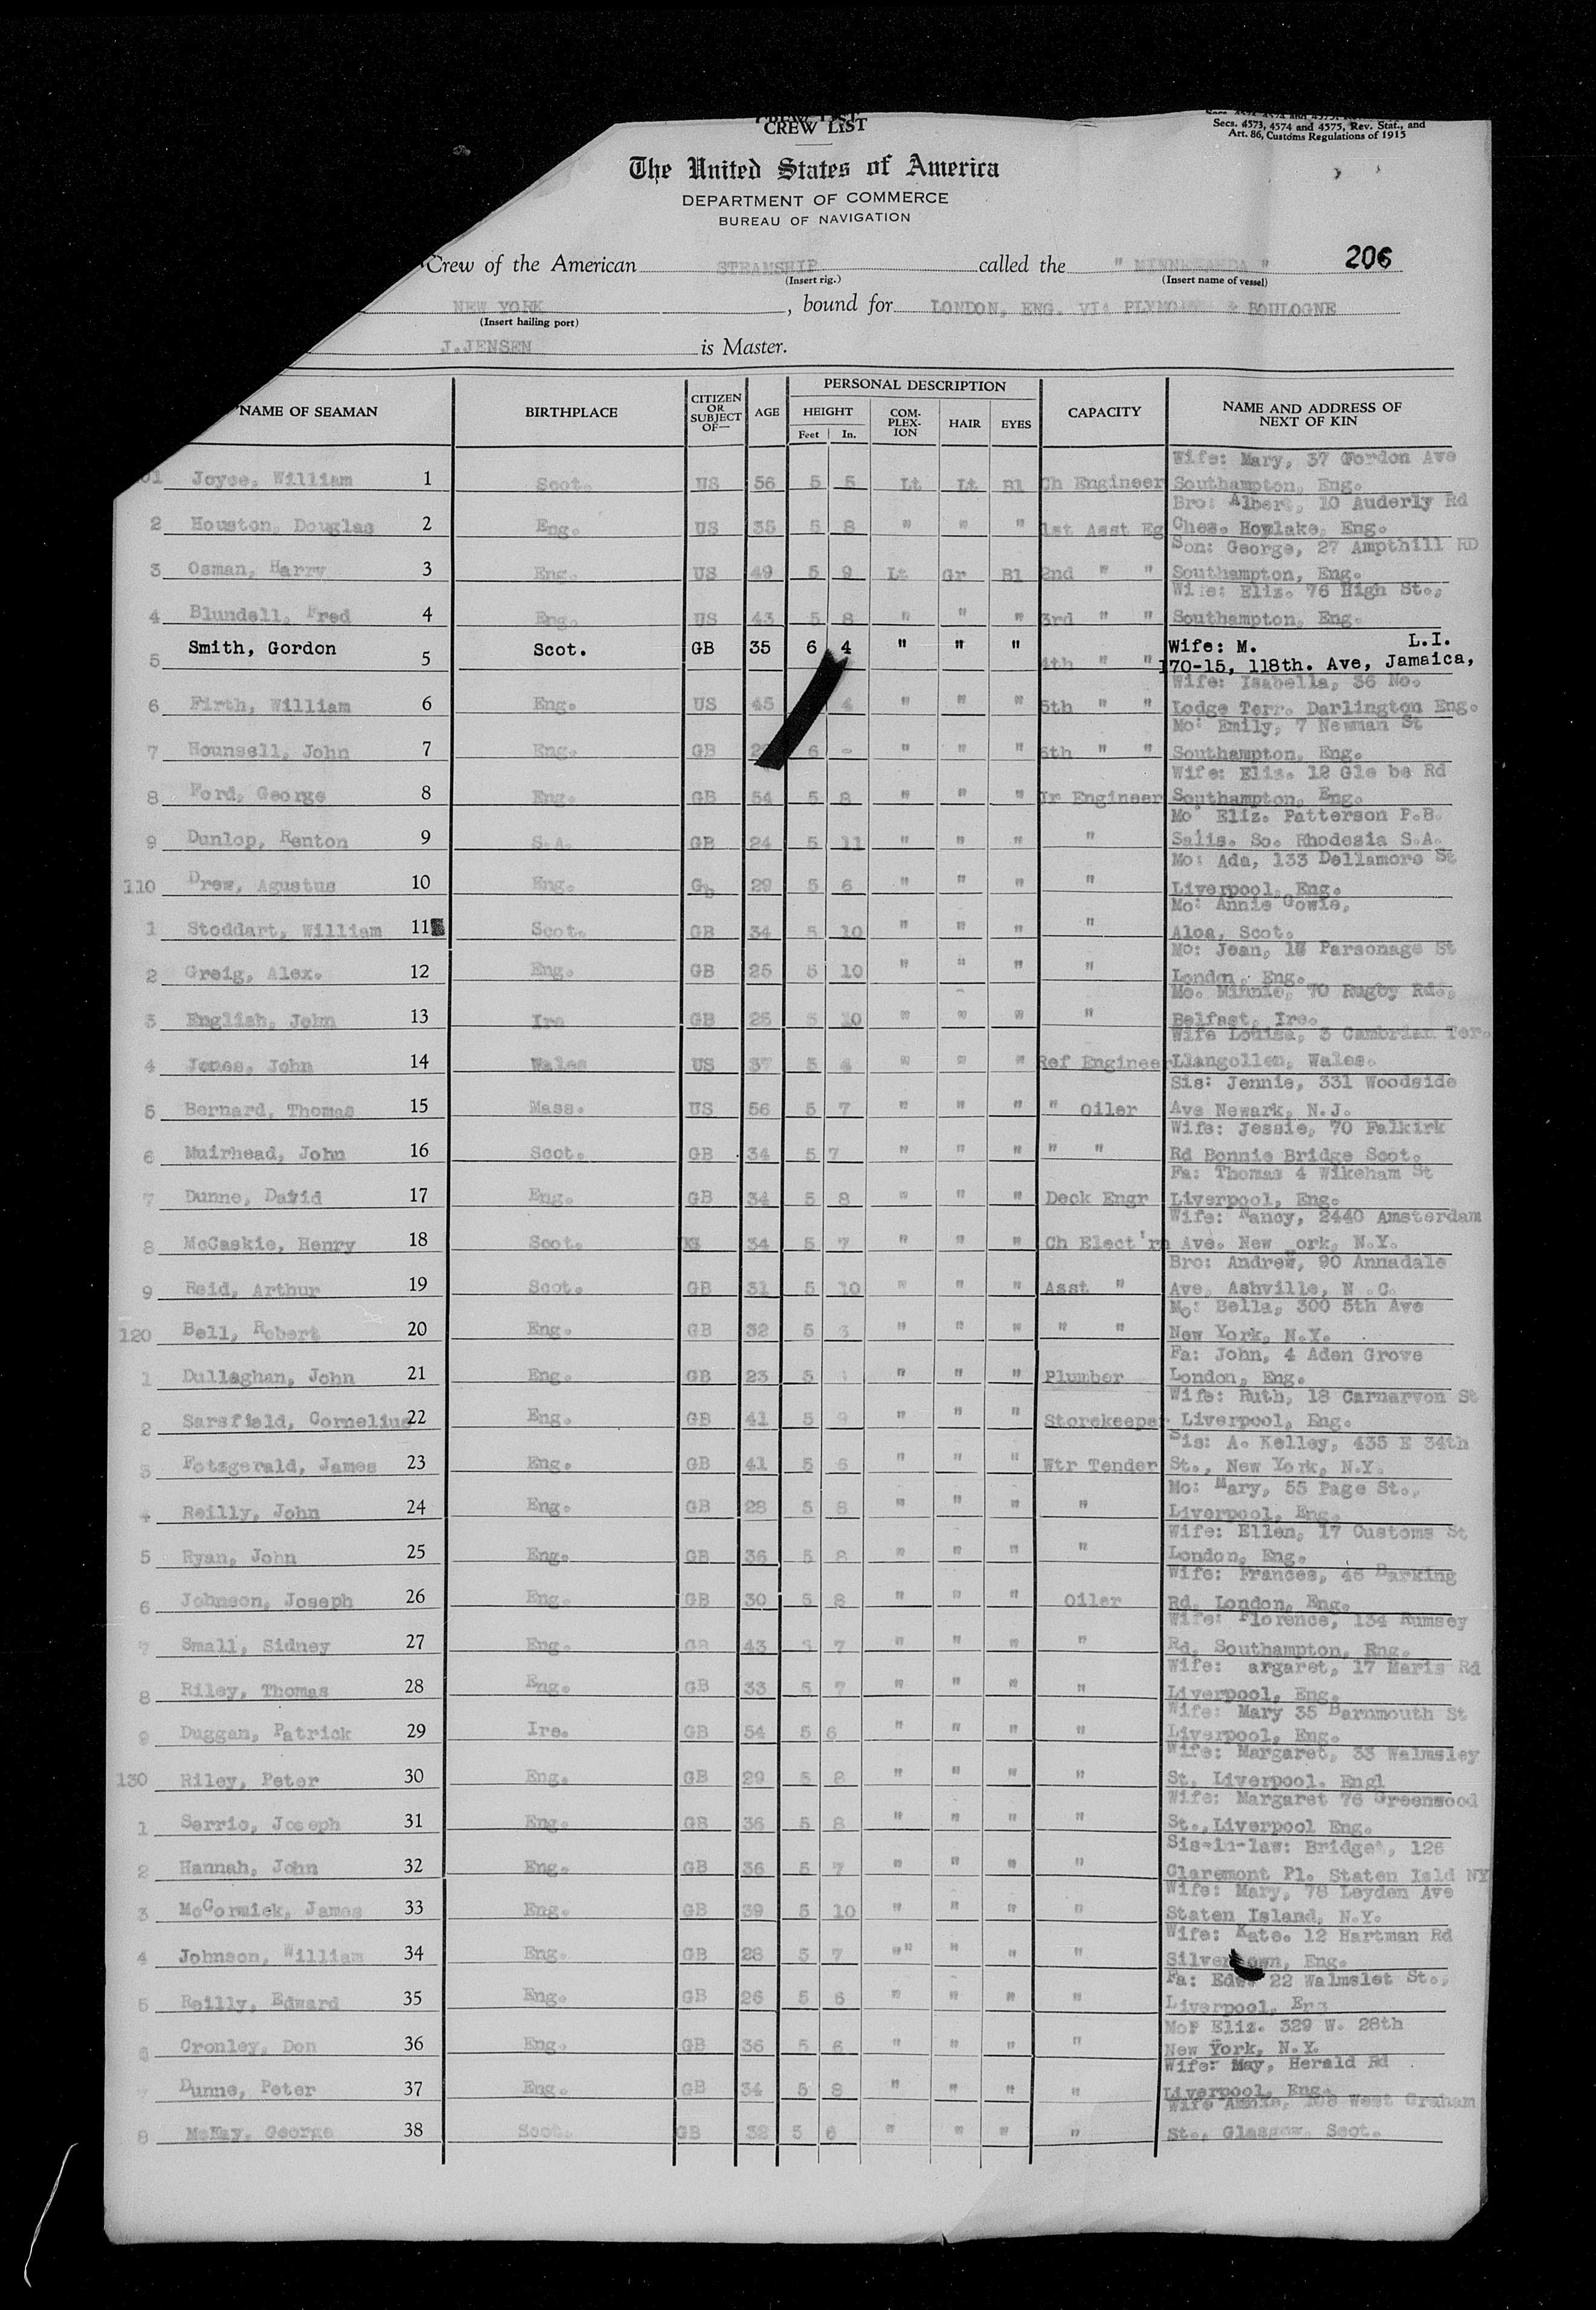 CREW LIST
Secs. 4573, 4574 and 4575, Rev. Stat., and
Art. 86, Customs Regulations of 1915
The United States of America
DEPARTMENT OF COMMERCE
BUREAU OF NAVIGATION
Crew of the American STEAMSHIP called the " " 206
(Insert rig.) (Insert name of vessel)
NEW YORK , bound for LONDON, ENG. VIA & BOULOGNE
(Insert hailing port)
J.JENSEN is Master.
NAME OF SEAMAN BIRTHPLACE CITIZEN OR SUBJECT OF— AGE PERSONAL DESCRIPTION HEIGHT Feet In. COM-PLEX-ION HAIR EYES CAPACITY NAME AND ADDRESS OF NEXT OF KIN
Wife: Mary, 37 Gordon Ave
01 Joyce, William 1 Scot. US 56 5 5 Lt Lt Bl Ch Engineer Southampton, Eng.
Bro: Albert, 10 Auderly Rd
2 Houston, Douglas 2 Eng. US 35 5 8 " " " 1st Asst Eg Ches. Hoylake, Eng.
Son: George, 27 Ampthill RD
3 Osman, Harry 3 Eng. US 49 5 9 Lt Gr Bl 2nd " " Southampton, Eng.
Wife: Eliz. 76 High St.,
4 Blundell, Fred 4 Eng. US 43 5 8 " " " 3rd " " Southampton, Eng.
Smith, Gordon Scot. GB 35 6 4 " " " Wife: M. L.I.
5 5 4th " " 170-15, 118th. Ave, Jamaica,
Wife: Isabella, 36 No.
6 Firth, William 6 Eng. US 45 4 " " " 5th " " Lodge Terr. Darlington Eng.
Mo: Emily, 7 Newman St
7 Hounsell, John 7 Eng. GB 6 - " " " 6th " " Southampton, Eng.
Wife: Eliz. 12 Gle be Rd
8 Ford, George 8 Eng. GB 54 5 8 " " " Jr Engineer Southampton, Eng.
Mo Eliz. Patterson P.B.
9 Dunlop, Renton 9 S.A. GB 24 5 11 " " " " Salis. So. Rhodesia S.A.
Mo: Ada, 133 Dellamore St
110 Drew, Agustus 10 Eng. Gb 29 5 6 " " " " Liverpool, Eng.
Mo: Annie Gowie,
1 Stoddart, William 11 Scot. GB 34 5 10 " " " " Aloa, Scot.
Mo: Jean, Parsonage St
2 Greig, Alex. 12 Eng. GB 25 5 10 " " " " London, Eng.
Mo. Minnie, 70 Rugby Rd.,
3 English, John 13 Ire GB 25 5 10 " " " " Belfast, Ire.
Wife Louisa, 3 Cambrian Ter.
4 Jones, John 14 Wales US 37 5 4 " " " Ref Engineer Llangollen, Wales.
Sis: Jennie, 331 Woodside
5 Bernard, Thomas 15 Mass. US 56 5 7 " " " " Oiler Ave Newark, N.J.
Wife: Jessie, 70 Falkirk
6 Muirhead, John 16 Scot. GB 34 5 7 " " " " " Rd Bonnie Bridge Scot.
Fa: Thomas 4 Wikeham St
7 Dunne, David 17 Eng. GB 34 5 8 " " " Deck Engr Liverpool, Eng.
Wife: Nancy, 2440 Amsterdam
8 McCaskie, Henry 18 Scot. 34 5 7 " " " Ch Elect'rn Ave. New ork, N.Y.
Bro: Andrew, 90 Annadale
9 Reid, Arthur 19 Scot. GB 31 5 10 " " " Asst " Ave, Ashville, N.C.
Mo: Bella, 300 5th Ave
120 Bell, Robert 20 Eng. GB 32 5 " " " " " New York, N.Y.
Fa: John, 4 Aden Grove
1 Dullaghan, John 21 Eng. GB 23 5 " " " Plumber London, Eng.
Wife: Ruth, 18 Carnarvon St
2 Sarsfield, Cornelius 22 Eng. GB 41 5 9 " " " Storekeeper Liverpool, Eng.
Sis: A. Kelley, 435 E 34th
3 Fotzgerald, James 23 Eng. GB 41 5 6 " " " Wtr Tender St., New York, N.Y.
Mo: Mary, 55 Page St.,
4 Reilly, John 24 Eng. GB 28 5 8 " " " " Liverpool, Eng.
Wife: Ellen, 17 Customs St
5 Ryan, John 25 Eng. GB 36 5 8 " " " " London, Eng.
Wife: Frances, 45 Barking
6 Johnson, Joseph 26 Eng. GB 30 5 8 " " " Oiler Rd, London, Eng.
Wife: Florence, 134 Rumsey
7 Small, Sidney 27 Eng. GB 43 5 7 " " " " Rd, Southampton, Eng.
Wife: argaret, 17 Maris Rd
8 Riley, Thomas 28 Eng. GB 33 5 7 " " " " Liverpool, Eng.
Wife: Mary 35 Barnmouth St
9 Duggan, Patrick 29 Ire. GB 54 5 6 " " " " Liverpool, Eng.
Wife: Margaret, 33 Walmsley
130 Riley, Peter 30 Eng. GB 29 5 8 " " " " St, Liverpool. Engl
Wife: Margaret 76 Greenwood
1 Serrio, Joseph 31 Eng. GB 36 5 8 " " " " St., Liverpool Eng.
Sis-in-law: Bridget, 126
2 Hannah, John 32 Eng. GB 36 5 7 " " " " Claremont Pl. Staten Isld NY
Wife: Mary, 78 Leyden Ave
3 McCormick, James 33 Eng. GB 39 5 10 " " " " Staten Island, N.Y.
Wife: Kate. 12 Hartman Rd
4 Johnson, William 34 Eng. GB 28 5 7 "" " " " Eng.
Fa: Edw. 22 Walmslet St.,
5 Reilly, Edward 35 Eng. GB 26 5 6 " " " " Liverpool, Eng
Mo: Eliz. 329 W. 28th
6 Cronley, Don 36 Eng. GB 36 5 6 " " " " New York, N.Y.
Wife: May, Herald Rd
7 Dunne, Peter 37 Eng. GB 34 5 8 " " " " Liverpool, Eng.
Wife Annie, West Graham
8 McKay, George 38 Scot. GB 32 5 6 " " " " St., Glasgow, Scot.